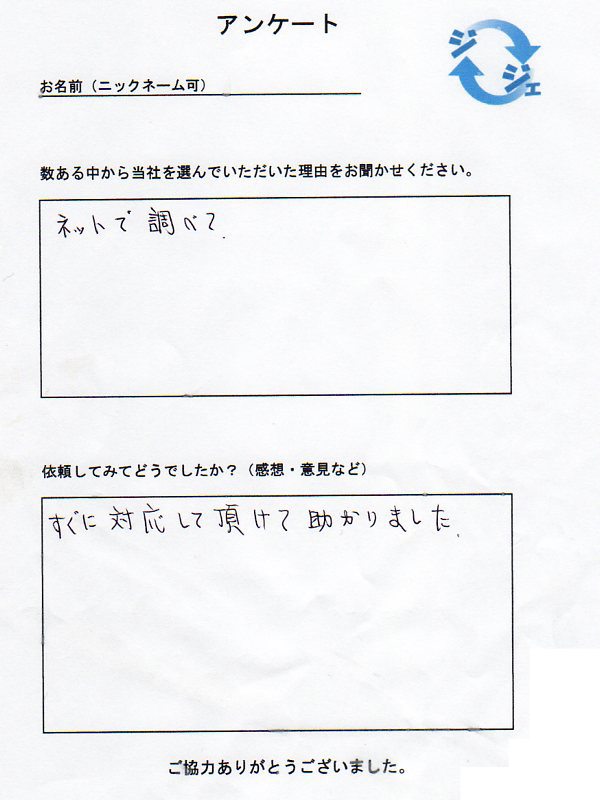 アンケート
ジ
ジェ
お名前（ニックネーム可）
数ある中から当社を選んでいただいた理由をお聞かせください。
ネットで調べて.
依頼してみてどうでしたか？（感想・意見など）
すぐに対応して頂けて助かりました.
ご協力ありがとうございました。